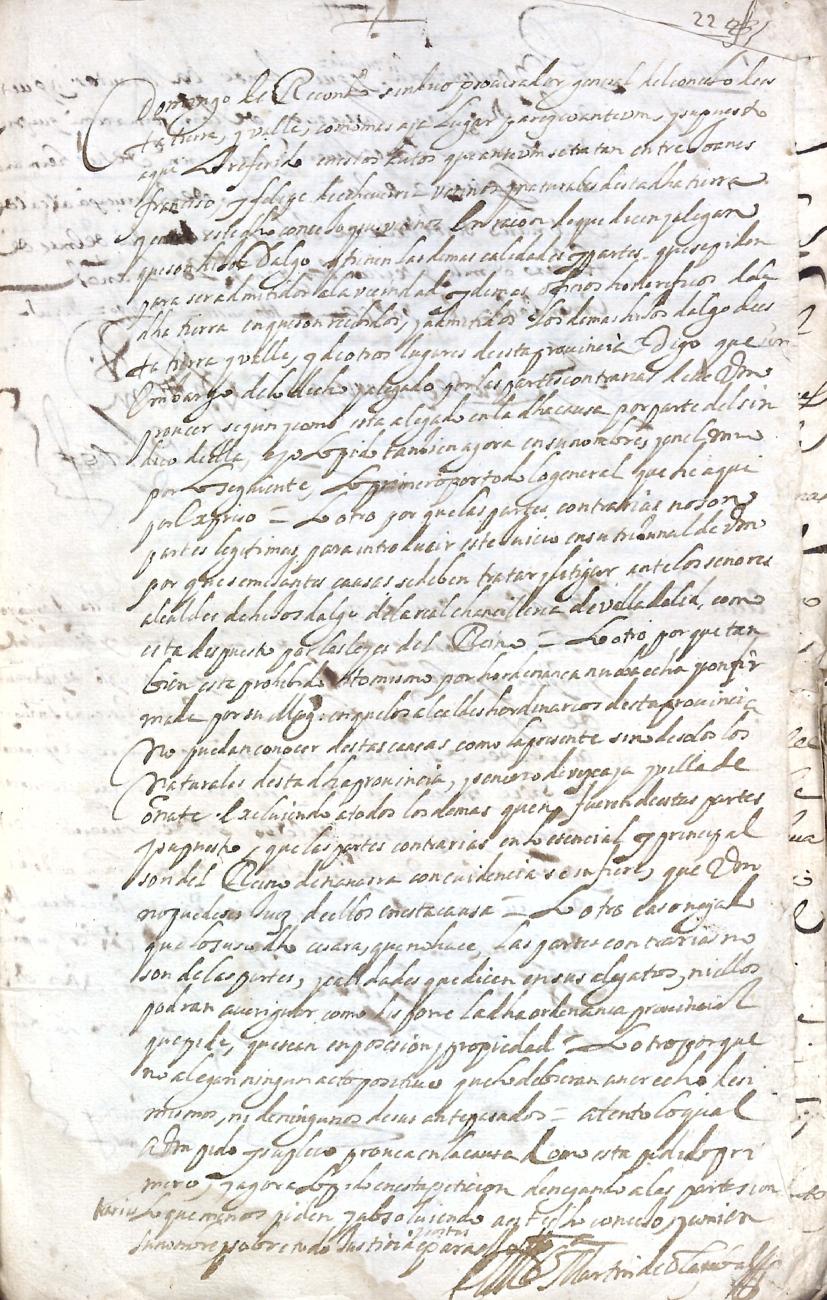 22
Domingo de sindico procurador general del concejo des
ta tierra, y valle, como mas aya lugar parezco ante vm, y supuesto
aque lo referido en estos autos que ante vm se tratan entre Joanes
francisco, y felipe de vezinos y naturales desta dha tierra
este dho concejo y sus vezinos en racon de que dicen y alegan
que son hijos Dalgo y tienen las demas calidades y partes que se piden
para ser admitidos a la vezindad y demas oficios honorificos de la
dha tierra en que son recibidos, y admitidos los demas hijos dalgo des
ta tierra y valle, y de otros lugares de esta provincia Digo que sin
embargo de lo dicho y alegado por las partes contrarias debe Vm
proveer segun y como esta alegado en la dha causa por parte del sin
dico della, y lo pido tambien agora en su nombre, y en el mio
por lo siguiente, Lo primero por todo lo general que he aqui
por expreso = Lo otro por que las partes contrarias no son
partes legitimas, para introducir este juicio en su tribunal de Vm
por que semejantes causas se deben tratar y litigar ante los señores
alcaldes de hijos dalgo de la real chancilleria de Valladolid, como
esta dispuesto por las leyes del Reino = Lo otro por que tan
bien esta prohibido lo mismo por hordenanca nueva echa y confir
mada por su Magd en que los alcaldes hordinarios desta provincia
No puedan conocer destas causas como la presente sino de solo los
Naturales desta dha provincia, y senorio de vizcaya y villa de
Oñate excluiendo a todos los demas que no fueren de estas partes
y supuesto, que las partes contrarias en lo esencial, y principal
son del Reino de navarra con evidencia se infiere, que Vm
no puede ser Juez de ellos en esta causa = Lo otro caso negado
que lo susodho cesara, que no hace, las partes contrarias no
son de las partes, y calidades que dicen en sus alegatos, ni ellos
podran averiguar como dispone la dha ordenanca provincial
que pide, que sean en posecion y propiedad = Lo otro por que
no alegan ningun acto positivo que lo debieran aver echo de si
mismos, ni de ningunos de sus antepasados = atento lo qual
a Vm pido y suplico provea en la causa como esta pedido pri
mero, y agora lo pido en esta peticion denegando a las partes con
trarias lo que menos piden y absolviendo a este dho concejo, y a mi en
su nombre sobre todo Justicia y para ello
Martin de Olazabal